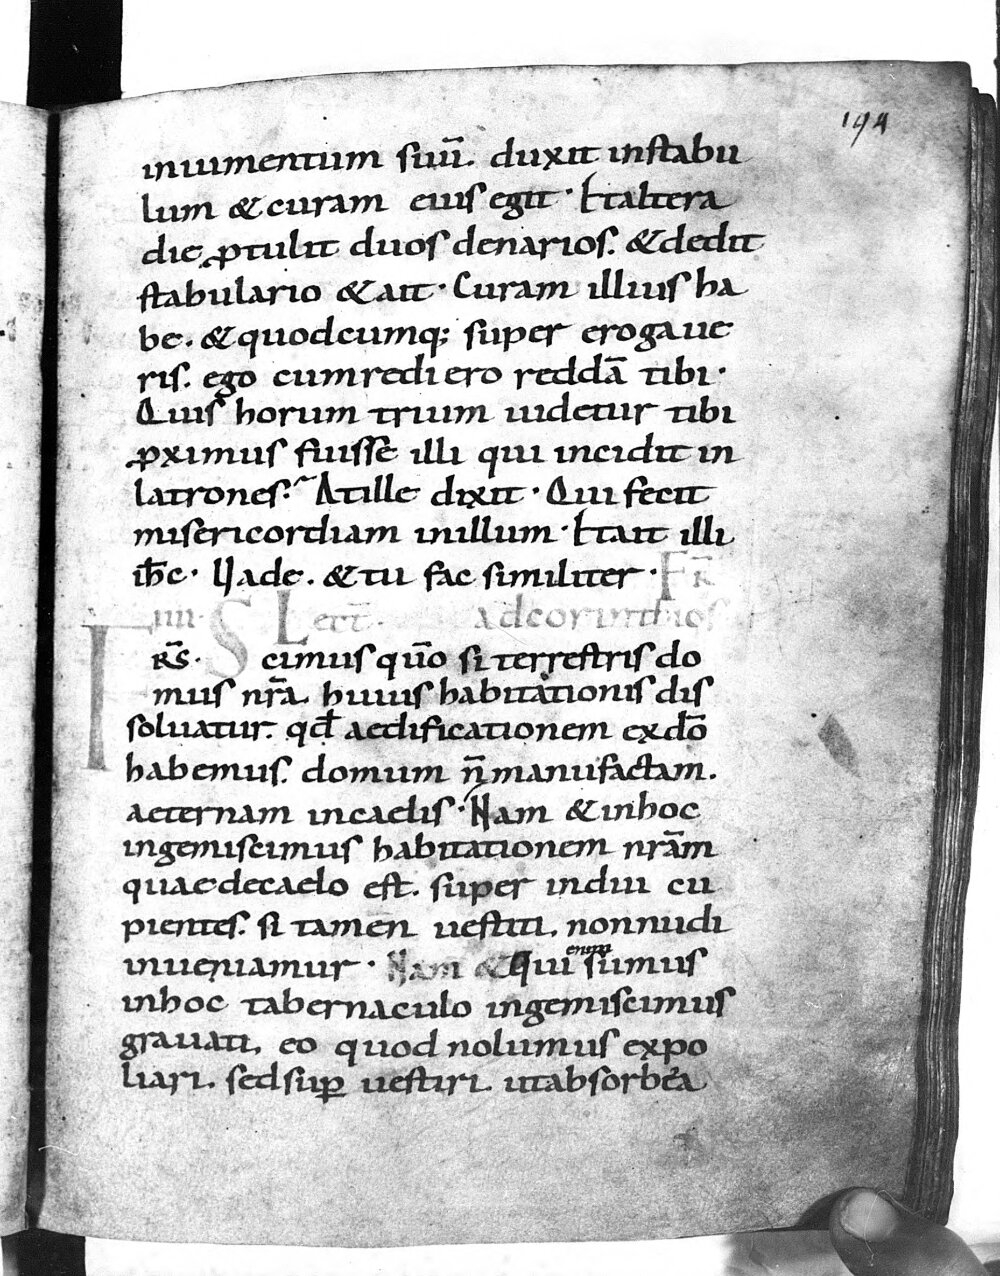 194
iniumentum suū. duxit instabu
lum & curam eius egit · Et altera
die ꝓtulit duos denarios. & dedit
stabulario & ait · Curam illius ha
be. & quodcumq; super erogaue
ris. ego cum rediero reddā tibi ·
Quis horum trium uidetur tibi
ꝓximus fuisse illi qui incidit in
latrones. At ille dixit · Qui fecit
misericordiam inillum · Et ait illi
ih̄c · Uade. & tu fac similiter · FR̄
IIII · Lect̄ ad corinthios
FR̄S · Scimus qūo si terrestris do
mus nr̄a huius habitationis dis
soluatur. qd̄ aedificationem exdō
habemus. domum n̄ manufactam.
aeternam incaelis · Nam & inhoc
ingemiscimus habitationem nrām
quae decaelo est. super indui cu
pientes. si tamen uestiti. non nudi
inueniamur · Nam & Qui enim sumus
inhoc tabernaculo ingemiscimus
grauati, eo quod nolumus expo
liari. sed suꝑ uestiri. ut absorbea